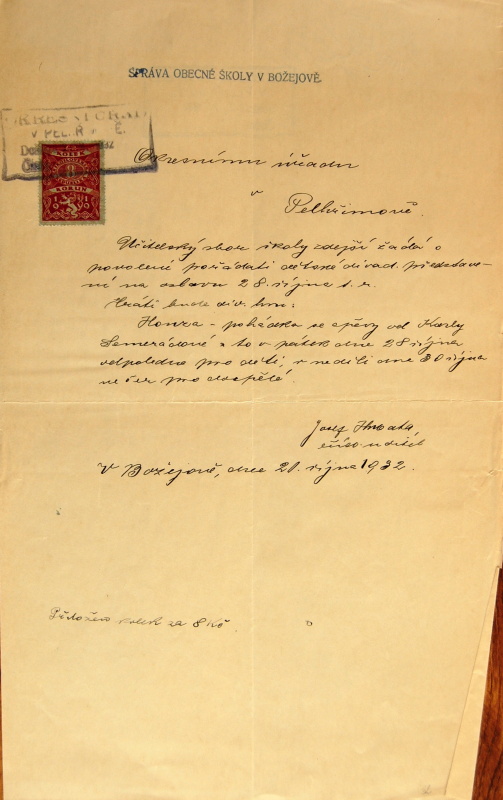 SPRÁVA OBECNÉ ŠKOLY V BOŽEJOVĚ.
V PELHŘ
Okresnímu úřadu
v
Pelhřimově.
Učitelský sbor školy zdejší žádá o
povolení pořádati dětské divad. představe-
ní na oslavu 28 října t. r.
Hráti bude div. hru:
Honza - pohádka se zpěvy od Karly
a to v pátek dne 28 října
odpoledne pro děti, v neděli dne 30 října
večer pro dospělé.
Josef
učitel
V Božejově, dne 21. října 1932.
Přiložen kolek za 8 Kč
KOLEK
KORUN